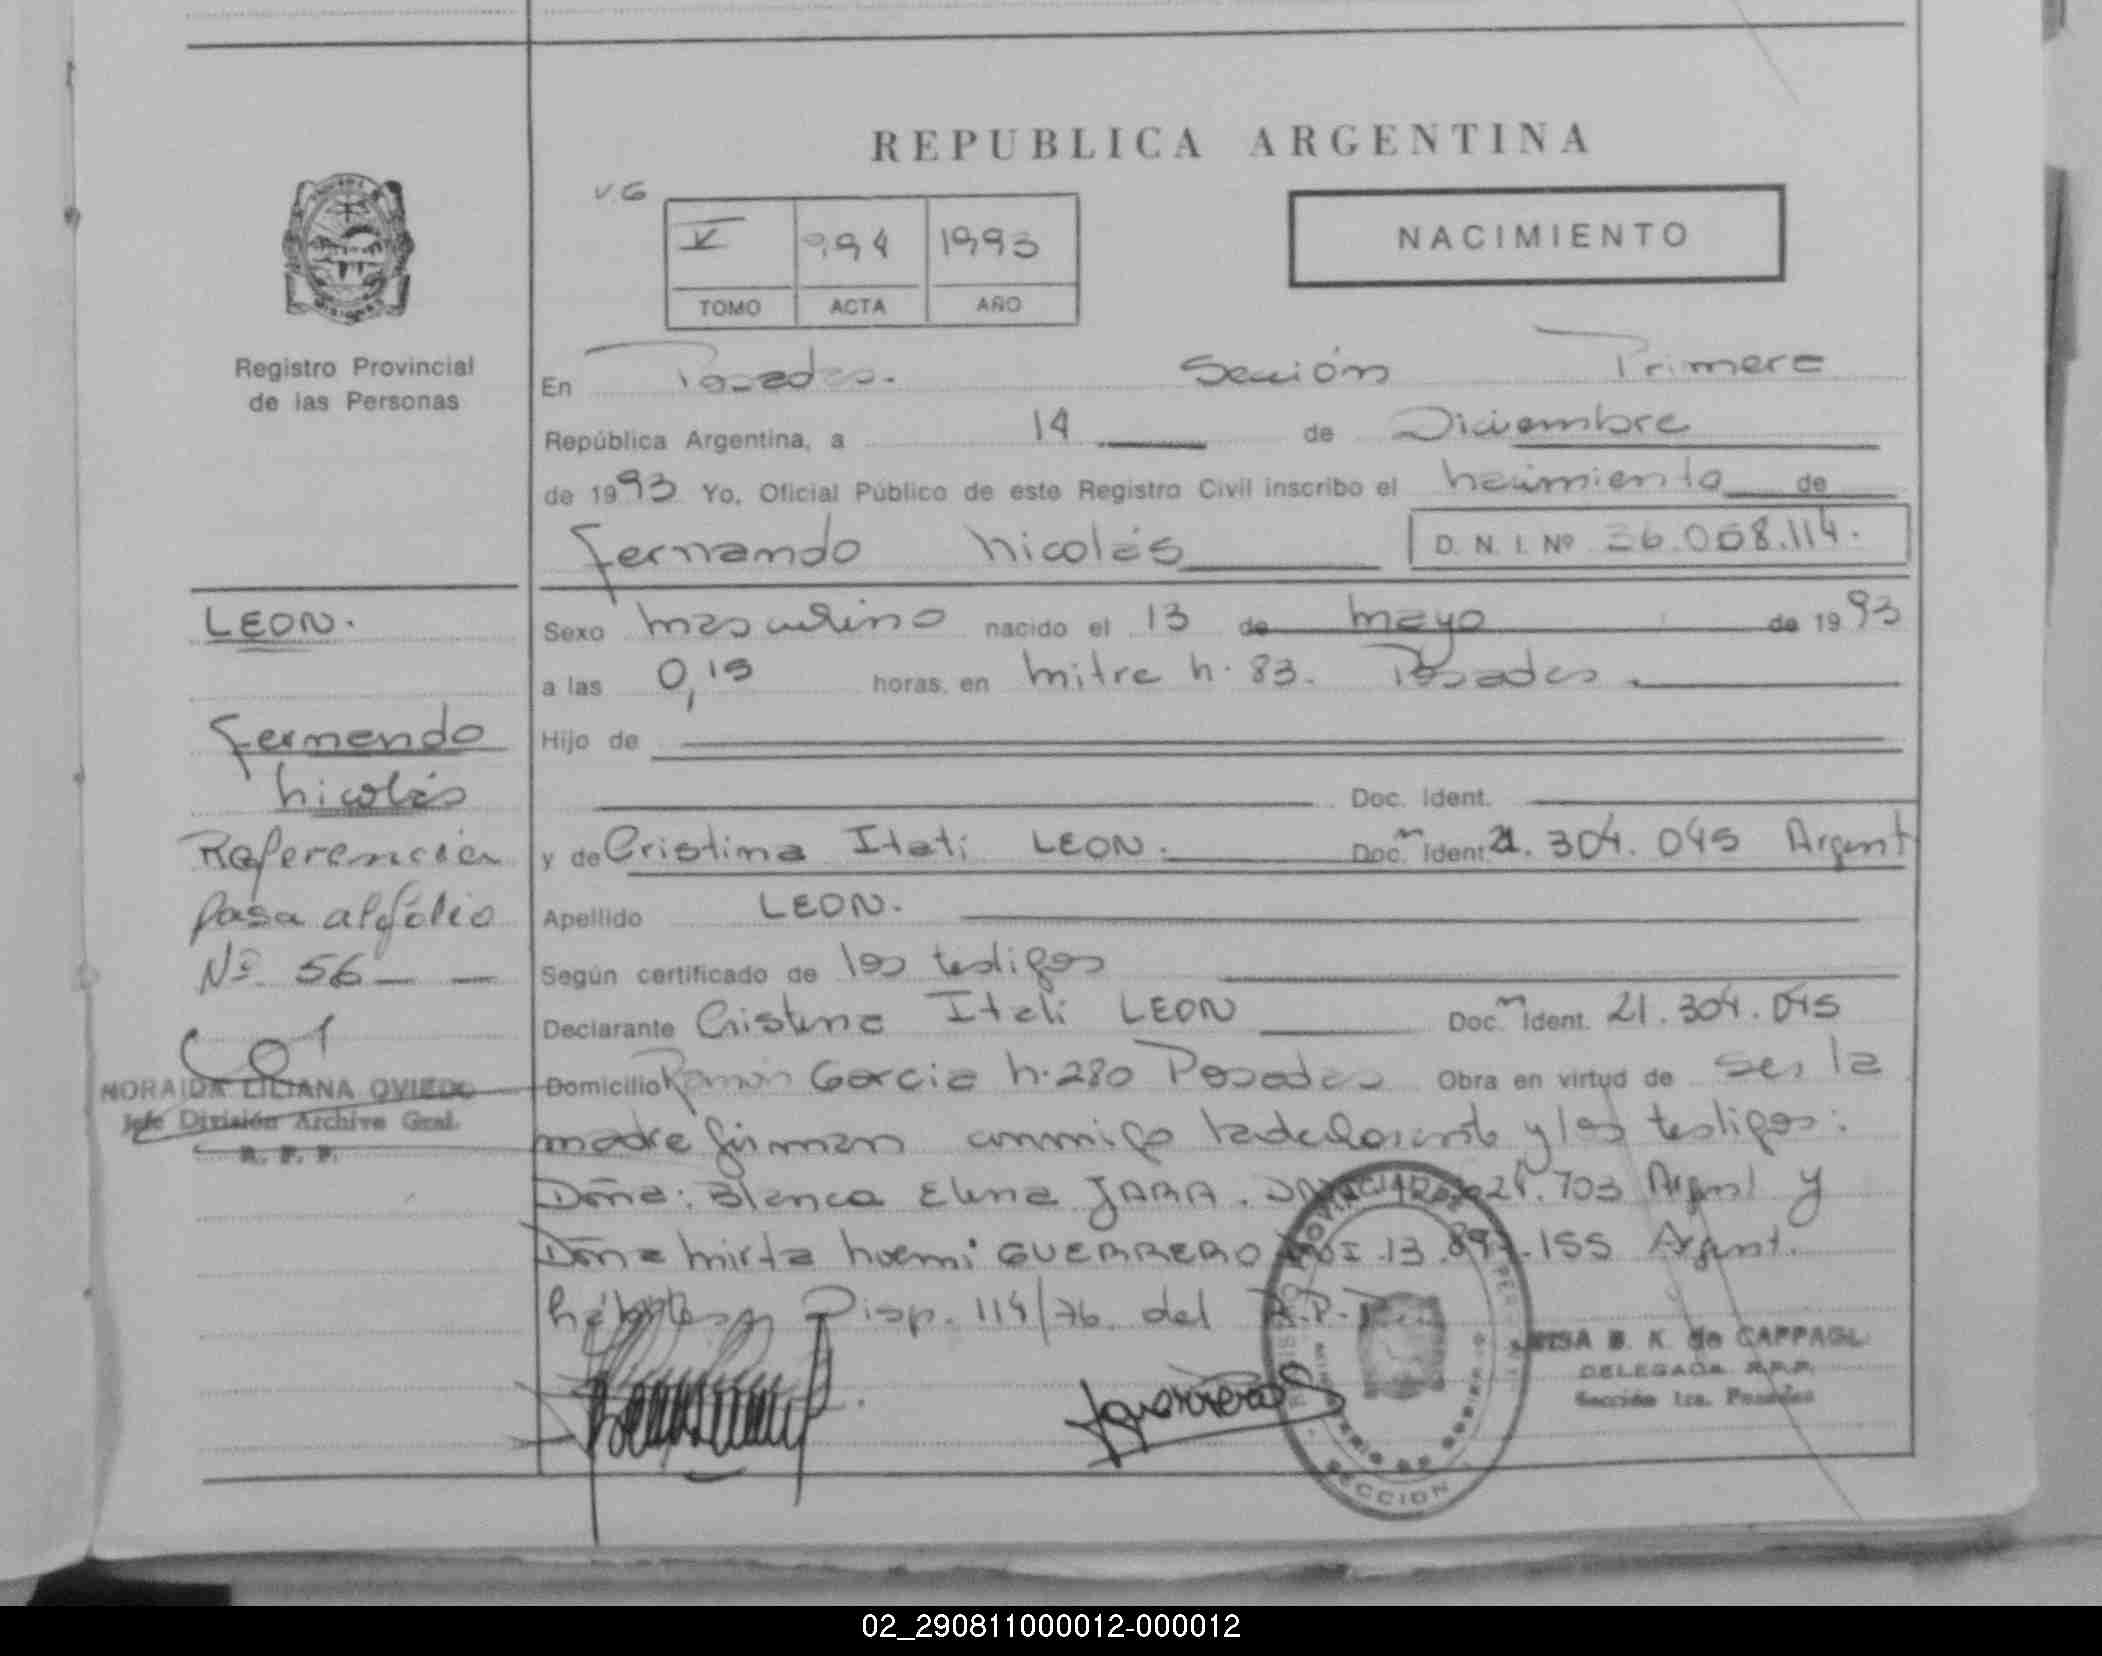 REPUBLICA ARGENTINA
V.G
V 994 1993
TOMO ACTA AÑO
NACIMIENTO
Registro Provincial
de las Personas
En Posadas. Sección Primera
República Argentina, a 14 de Diciembre
de 1993 Yo, Oficial Público de este Registro Civil inscribo el nacimiento de
Fernando Nicolás D. N. I. Nº 36.008.114.
LEON.
Sexo masculino nacido el 13 de mayo de 1993
a las 0,15 horas, en Mitre n. 83. Posadas.
Fernando
Nicolás
Hijo de
Doc. Ident.
Referencia
y de Cristina Itati LEON. Doc. Ident. 21.304.045 Argent
pasa al folio
Apellido LEON.
Nº 56
Según certificado de los testigos
Declarante Cristina Itati LEON Doc. Ident. 21.304.045
NORAIDA LILIANA OVIEDO
Jefe División Archivo Gral.
R. P. P.
Domicilio Ramón Garcia n. 280 Posadas Obra en virtud de ser la
madre firman conmigo la declarante y los testigos:
Doña: Blanca Elena JARA. .703 Argent y
Doña Mirta Noemi GUERRERO DNI 13. .155 Argent.
hábiles Disp. 114/76. del R.P.P.
B. K. de CAPPAGLI
DELEGADA R.P.P.
Sección 1ra. Posadas
SECCION
02_290811000012-000012